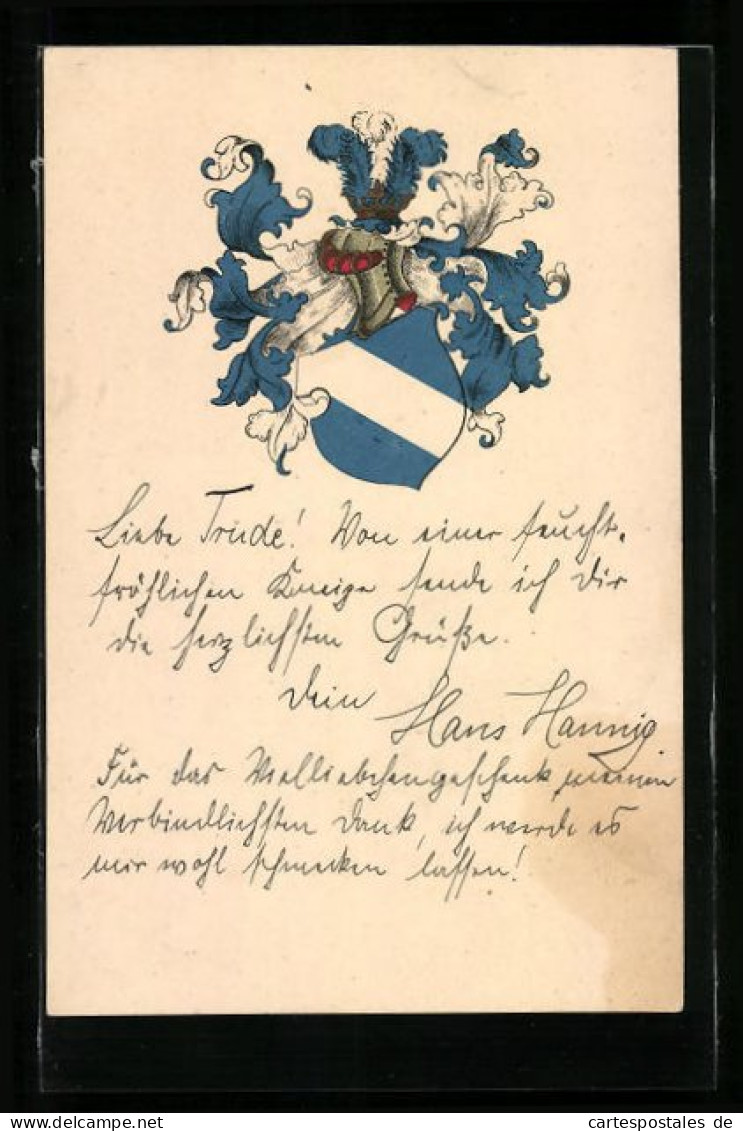 Liebe Trude! Von einer feucht-
fröhlichen Kneipe sende ich Dir
die herzlichsten Grüße.
Dein Hans Hannig.
Für das Vielliebchengeschenk meinen
verbindlichsten Dank, ich werde es
mir wohl schmecken lassen!
www.delcampe.net
cartespostales de